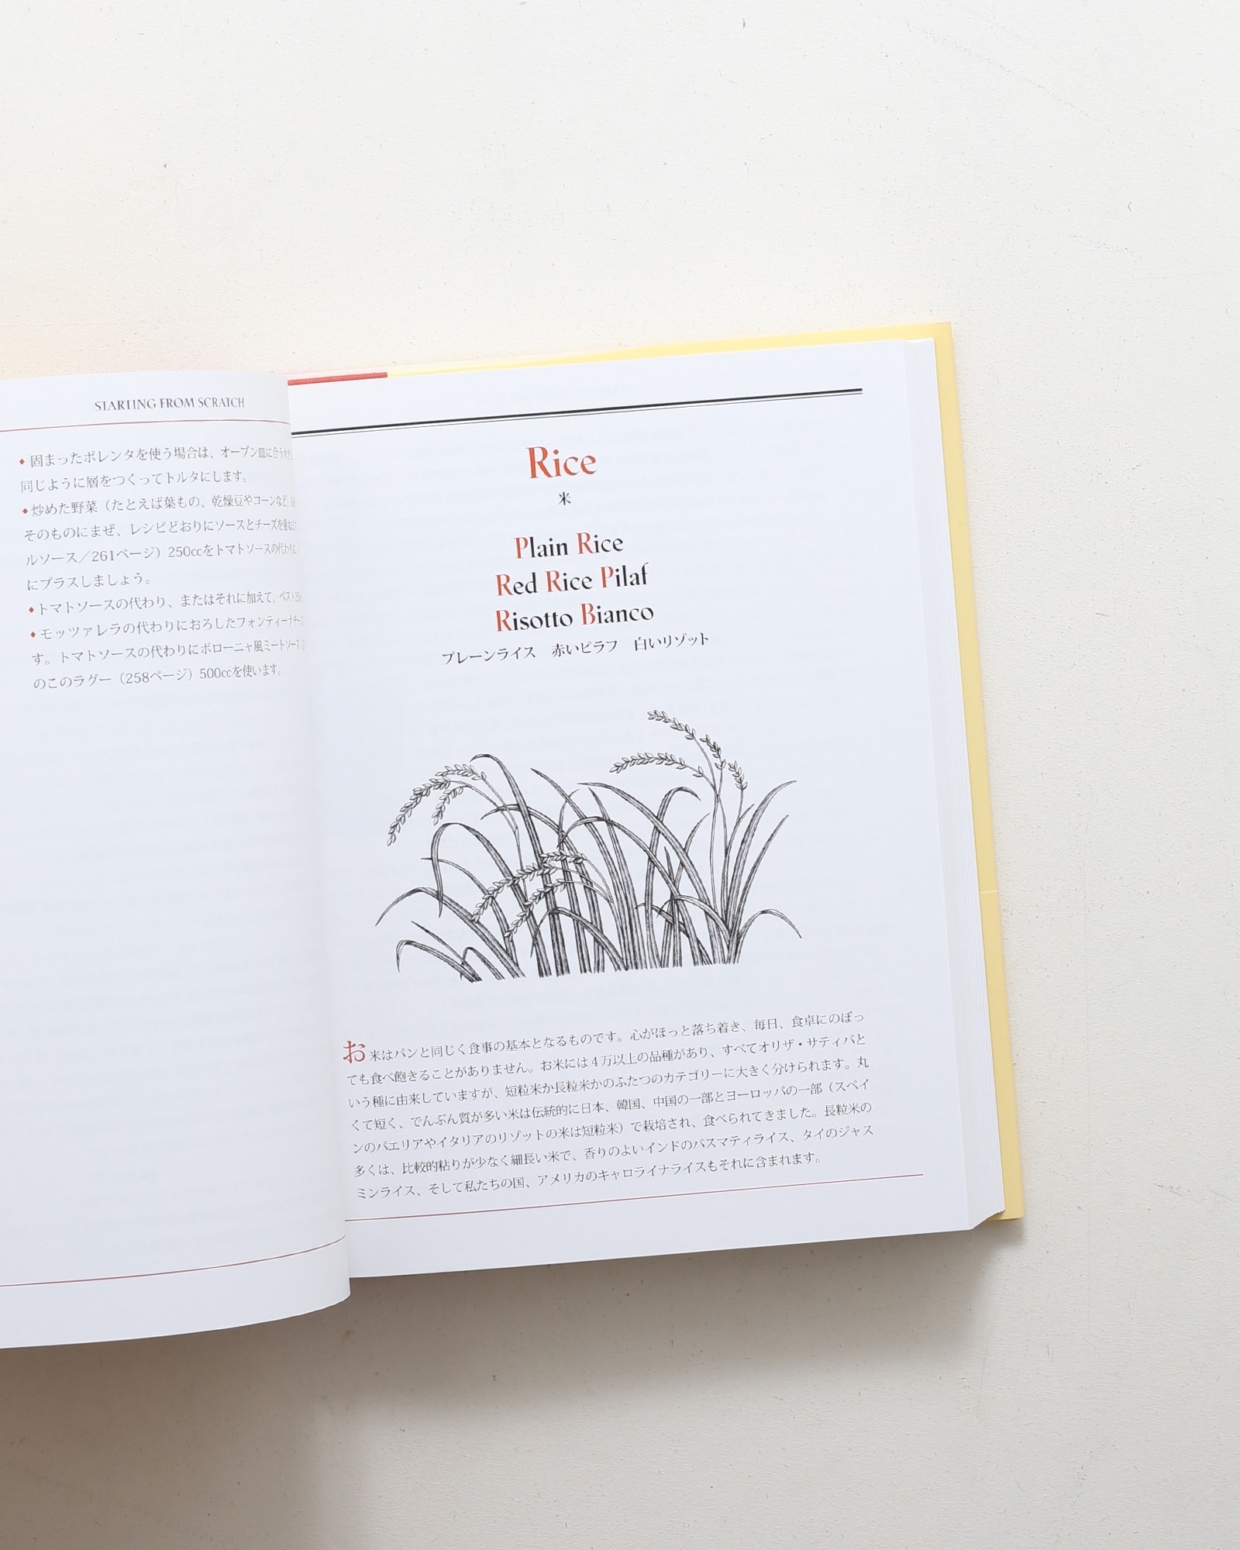 STARTING FROM SCRATCH
◆固まったポレンタを使う場合は、オーブン皿に合う
同じように層をつくってトルタにします。
◆炒めた野菜（たとえば葉もの、乾燥豆やコーンなど）
そのものにまぜ、レシピどおりにソースとチーズを
ルソース／261ページ）250ccをトマトソースの代わり
にプラスしましょう。
◆トマトソースの代わり、またはそれに加えて、ペスト
◆モッツァレラの代わりにおろしたフォンティーナチー
す。トマトソースの代わりにボローニャ風ミートソース
のこのラグー（258ページ）500ccを使います。
Rice
米
Plain Rice
Red Rice Pilaf
Risotto Bianco
プレーンライス　赤いピラフ　白いリゾット
お米はパンと同じく食事の基本となるものです。心がほっと落ち着き、毎日、食卓にのぼっ
ても食べ飽きることがありません。お米には4万以上の品種があり、すべてオリザ・サティバと
いう種に由来していますが、短粒米か長粒米かのふたつのカテゴリーに大きく分けられます。丸
くて短く、でんぷん質が多い米は伝統的に日本、韓国、中国の一部とヨーロッパの一部（スペイ
ンのパエリアやイタリアのリゾットの米は短粒米）で栽培され、食べられてきました。長粒米の
多くは、比較的粘りが少なく細長い米で、香りのよいインドのバスマティライス、タイのジャス
ミンライス、そして私たちの国、アメリカのキャロライナライスもそれに含まれます。